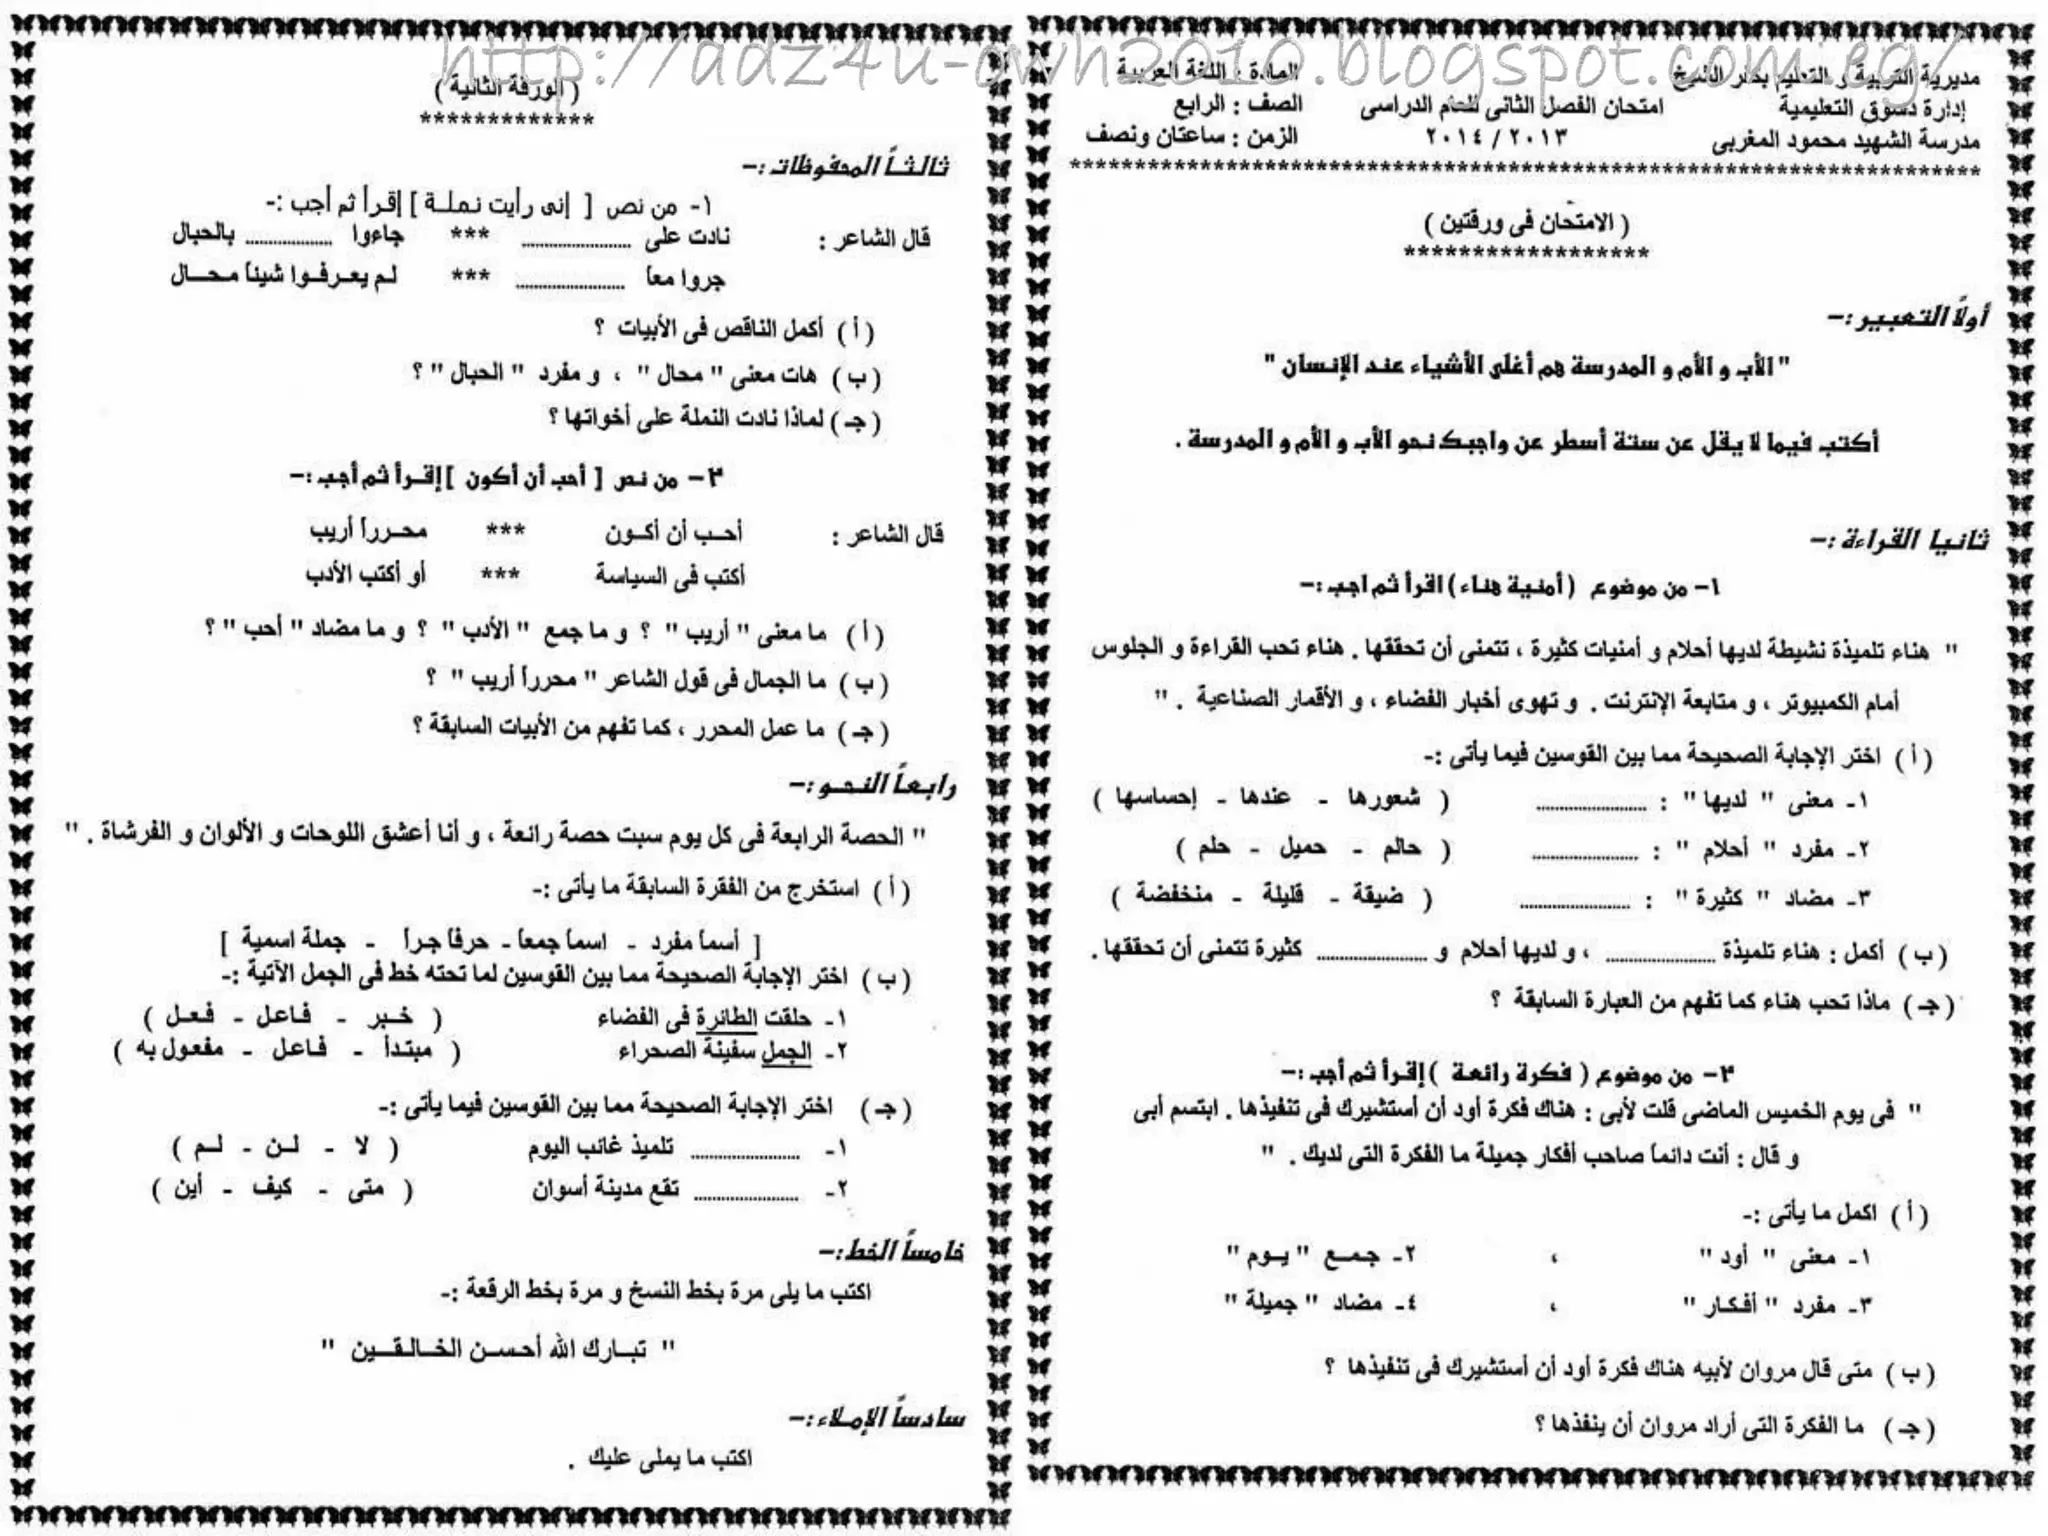 http://adz4u-own2010.blogspot.com.eg/
مديرية التربية و التعليم بكفر الشيخ المادة : اللغة العربية
إدارة دسوق التعليمية امتحان الفصل الثانى للعام الدراسى الصف : الرابع
مدرسة الشهيد محمود المغربى ٢٠١٣ / ٢٠١٤ الزمن : ساعتان ونصف
( الامتحان فى ورقتين )
أولاً التعبير :-
" الأب و الأم و المدرسة هم أغلى الأشياء عند الإنسان "
أكتب فيما لا يقل عن ستة أسطر عن واجبك نحو الأب و الأم و المدرسة .
ثانيا القراءة :-
١- من موضوع ( أمنية هناء ) اقرأ ثم اجب :-
" هناء تلميذة نشيطة لديها أحلام و أمنيات كثيرة ، تتمنى أن تحققها . هناء تحب القراءة و الجلوس
أمام الكمبيوتر ، و متابعة الإنترنت . و تهوى أخبار الفضاء ، و الأقمار الصناعية . "
( أ ) اختر الإجابة الصحيحة مما بين القوسين فيما يأتى :-
١- معنى " لديها " : .................... ( شعورها - عندها - إحساسها )
٢- مفرد " أحلام " : .................... ( حالم - حميل - حلم )
٣- مضاد " كثيرة " : .................... ( ضيقة - قليلة - منخفضة )
( ب ) أكمل : هناء تلميذة .................... ، و لديها أحلام و .................... كثيرة تتمنى أن تحققها .
( جـ ) ماذا تحب هناء كما تفهم من العبارة السابقة ؟
٢- من موضوع ( فكرة رائعة ) إقرأ ثم أجب :-
" فى يوم الخميس الماضى قلت لأبى : هناك فكرة أود أن أستشيرك فى تنفيذها . ابتسم أبى
و قال : أنت دائماً صاحب أفكار جميلة ما الفكرة التى لديك . "
( أ ) اكمل ما يأتى :-
١- معنى " أود " ، ٢- جمع " يوم "
٣- مفرد " أفكار " ، ٤- مضاد " جميلة "
( ب ) متى قال مروان لأبيه هناك فكرة أود أن أستشيرك فى تنفيذها ؟
( جـ ) ما الفكرة التى أراد مروان أن ينفذها ؟
( الورقة الثانية )
ثالثاً المحفوظات :-
١- من نص [ إنى رأيت نملة ] إقرأ ثم أجب :-
قال الشاعر : نادت على .................... *** جاءوا .................... بالحبال
جروا معاً .................... *** لم يعرفوا شيئاً محال
( أ ) أكمل الناقص فى الأبيات ؟
( ب ) هات معنى " محال " ، و مفرد " الحبال " ؟
( جـ ) لماذا نادت النملة على أخواتها ؟
٢- من نص [ أحب أن أكون ] إقرأ ثم أجب :-
قال الشاعر : أحب أن أكون *** محرراً أريب
أكتب فى السياسة *** أو أكتب الأدب
( أ ) ما معنى " أريب " ؟ و ما جمع " الأدب " ؟ و ما مضاد " أحب " ؟
( ب ) ما الجمال فى قول الشاعر " محرراً أريب " ؟
( جـ ) ما عمل المحرر ، كما تفهم من الأبيات السابقة ؟
رابعاً النحو :-
" الحصة الرابعة فى كل يوم سبت حصة رائعة ، و أنا أعشق اللوحات و الألوان و الفرشاة . "
( أ ) استخرج من الفقرة السابقة ما يأتى :-
[ أسماً مفرد - اسماً جمعاً - حرفاً جراً - جملة اسمية ]
( ب ) اختر الإجابة الصحيحة مما بين القوسين لما تحته خط فى الجمل الآتية :-
١- حلقت الطائرة فى الفضاء ( خبر - فاعل - فعل )
٢- الجمل سفينة الصحراء ( مبتدأ - فاعل - مفعول به )
( جـ ) اختر الإجابة الصحيحة مما بين القوسين فيما يأتى :-
١- .................... تلميذ غائب اليوم ( لا - لن - لم )
٢- .................... تقع مدينة أسوان ( متى - كيف - أين )
خامساً الخط :-
اكتب ما يلى مرة بخط النسخ و مرة بخط الرقعة :-
" تبارك الله أحسن الخالقين "
سادساً الإملاء :-
اكتب ما يملى عليك .